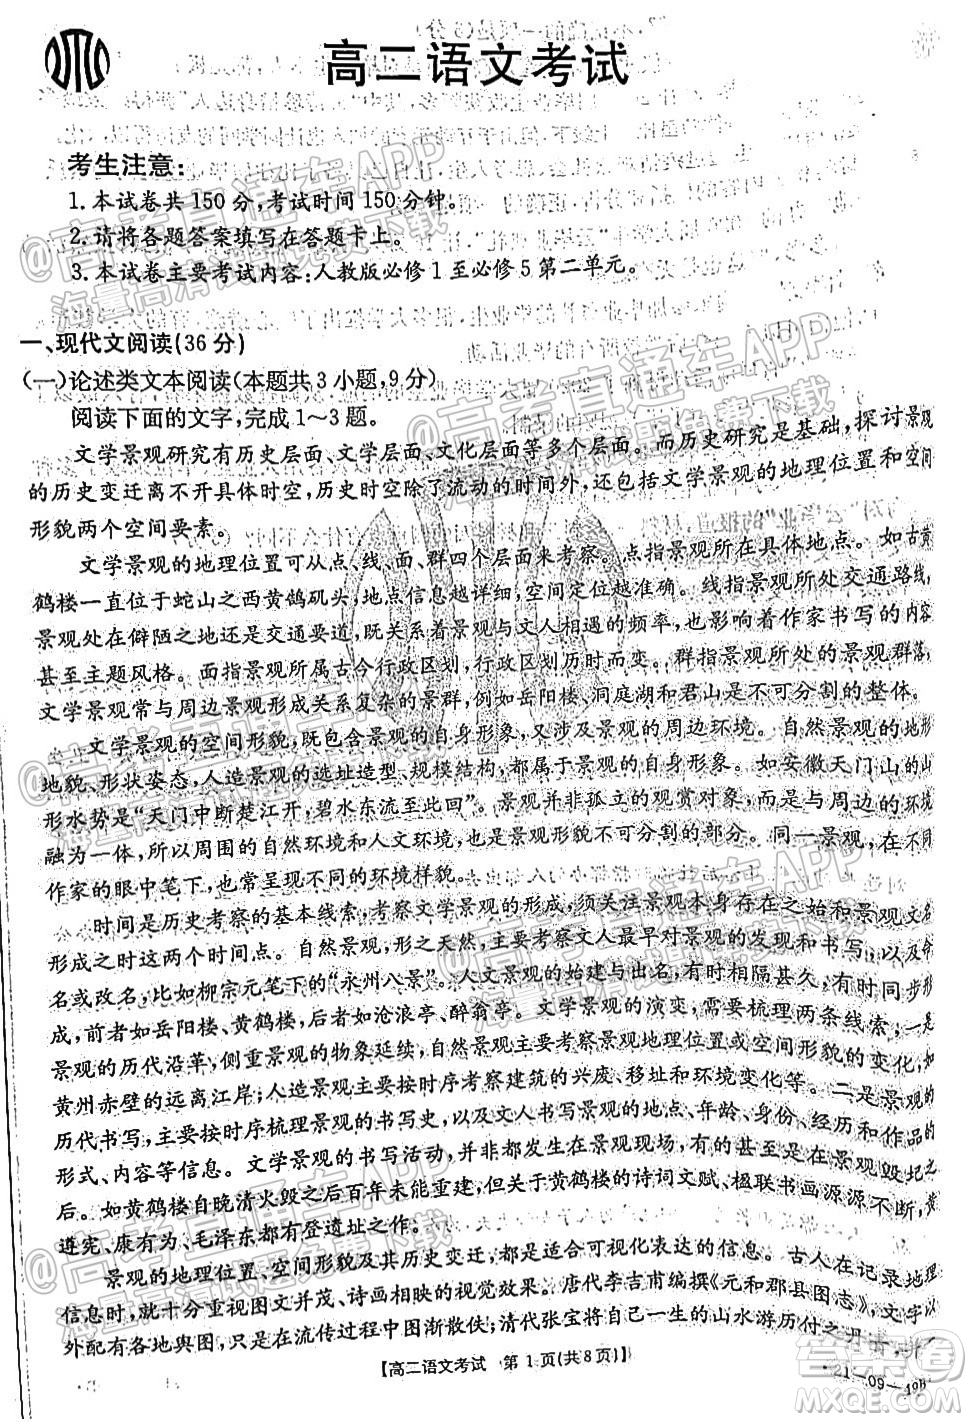 高二语文考试
考生注意：
1. 本试卷共150分，考试时间150分钟。
2. 请将各题答案填写在答题卡上。
3. 本试卷主要考试内容：人教版必修1至必修5第二单元。
一、现代文阅读(36分)
(一)论述类文本阅读(本题共3小题，9分)
阅读下面的文字，完成1～3题。
文学景观研究有历史层面、文学层面、文化层面等多个层面。而历史研究是基础，探讨景观
的历史变迁离不开具体时空，历史时空除了流动的时间外，还包括文学景观的地理位置和空间
形貌两个空间要素。
文学景观的地理位置可从点、线、面、群四个层面来考察。点指景观所在具体地点。如古黄
鹤楼一直位于蛇山之西黄鹄矶头，地点信息越详细，空间定位越准确。线指景观所处交通路线，
景观处在僻陋之地还是交通要道，既关系着景观与文人相遇的频率，也影响着作家书写的内容
甚至主题风格。面指景观所属古今行政区划，行政区划历时而变。群指景观所处的景观群落，
文学景观常与周边景观形成关系复杂的景群，例如岳阳楼、洞庭湖和君山是不可分割的整体。
文学景观的空间形貌，既包含景观的自身形象，又涉及景观的周边环境。自然景观的
地貌、形状姿态，人造景观的选址造型、规模结构，都属于景观的自身形象。如安徽天门山的山
形水势是“天门中断楚江开，碧水东流至此回”。景观并非孤立的观赏对象，与周边的环境
融为一体，所以周围的自然环境和人文环境，也是景观形象不可分割的部分。同一景观，在不同
作家的眼中笔下，也常呈现不同的环境样貌。
时间是历史考察的基本线索，考察文学景观的形成，须关注景观本身存在之始和景观文名
形成之时这两个时间点。自然景观，形之天然，主要考察文人最早对景观的发现和书写，以及命
名或改名，比如柳宗元笔下的“永州八景”。人文景观的始建与出名，有时相隔甚久，有时同步形
成，前者如岳阳楼、黄鹤楼，后者如沧浪亭、醉翁亭。文学景观的演变，需要梳理两条线索：一是
景观的历代沿革，侧重景观的物象延续，自然景观主要考察景观地理位置或空间形貌的变化，如
黄州赤壁的远离江岸；人造景观主要按时序考察建筑的兴废、移址和环境变化等。二是景观的
历代书写，主要按时序梳理景观的书写史，以及文人书写景观的地点、年龄、身份、经历和作品的
形式、内容等信息。文学景观的书写活动，并非都发生在景观现场，有的甚至是在景观毁圮之
后。如黄鹤楼自晚清火毁之后百年未能重建，但关于黄鹤楼的诗词文赋、楹联书画源源不断，黄
遵宪、康有为、毛泽东都有登遗址之作。
景观的地理位置、空间形貌及其历史变迁，都是适合可视化表达的信息。古人在记录地理
信息时，就十分重视图文并茂、诗画相映的视觉效果。唐代李吉甫编撰《元和郡县图志》，文字以
外配有各地舆图，只是在流传过程中图渐散佚；清代张宝将自己一生的山水游历付之丹青，并
【高二语文考试 第1页(共8页)】
·21－09－19B
@高考直通车APP
海量高清试题免费下载
@高考直通车APP
海量高清试题免费下载
@高考直通车APP
海量高清试题免费下载
@高考直通车APP
海量高清试题免费下载
@高考直通车APP
海量高清试题免费下载
答案圈
MXQE.COM